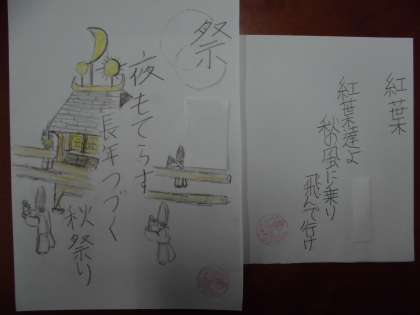 紅葉
紅葉達よ
秋の風に乗り
飛んで行け
祭
夜もてらす
長年つづく
秋祭り